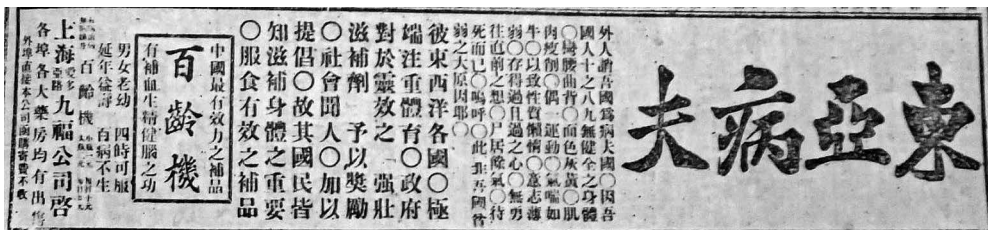 東亞病夫
外人誚吾國爲病夫國〇因吾
國人十之八九無健全之身體
〇彎腰曲背〇面色灰黃〇肌
肉瘦削〇偶一運動〇氣喘如
牛〇以致性質懶惰〇意志薄
弱〇存得過且過之心〇無勇
往直前之想〇尸居餘氣〇待
死而已〇嗚呼〇此非吾國貧
弱之大原因耶〇
彼東西洋各國〇極
端注重體育〇政府
對於靈效之 強壯
滋補劑 予以獎勵
〇社會聞人〇加以
提倡〇故其國民皆
知滋補身體之重要
〇服食有效之補品
中國最有效力之補品
百齡機
有補血生精健腦之功
男女老幼 四時可服
延年益壽 百病不生
百齡機
上海愛多亞路九福公司啓
各埠各大藥房均有出售
外埠直接本公司函購寄費不收